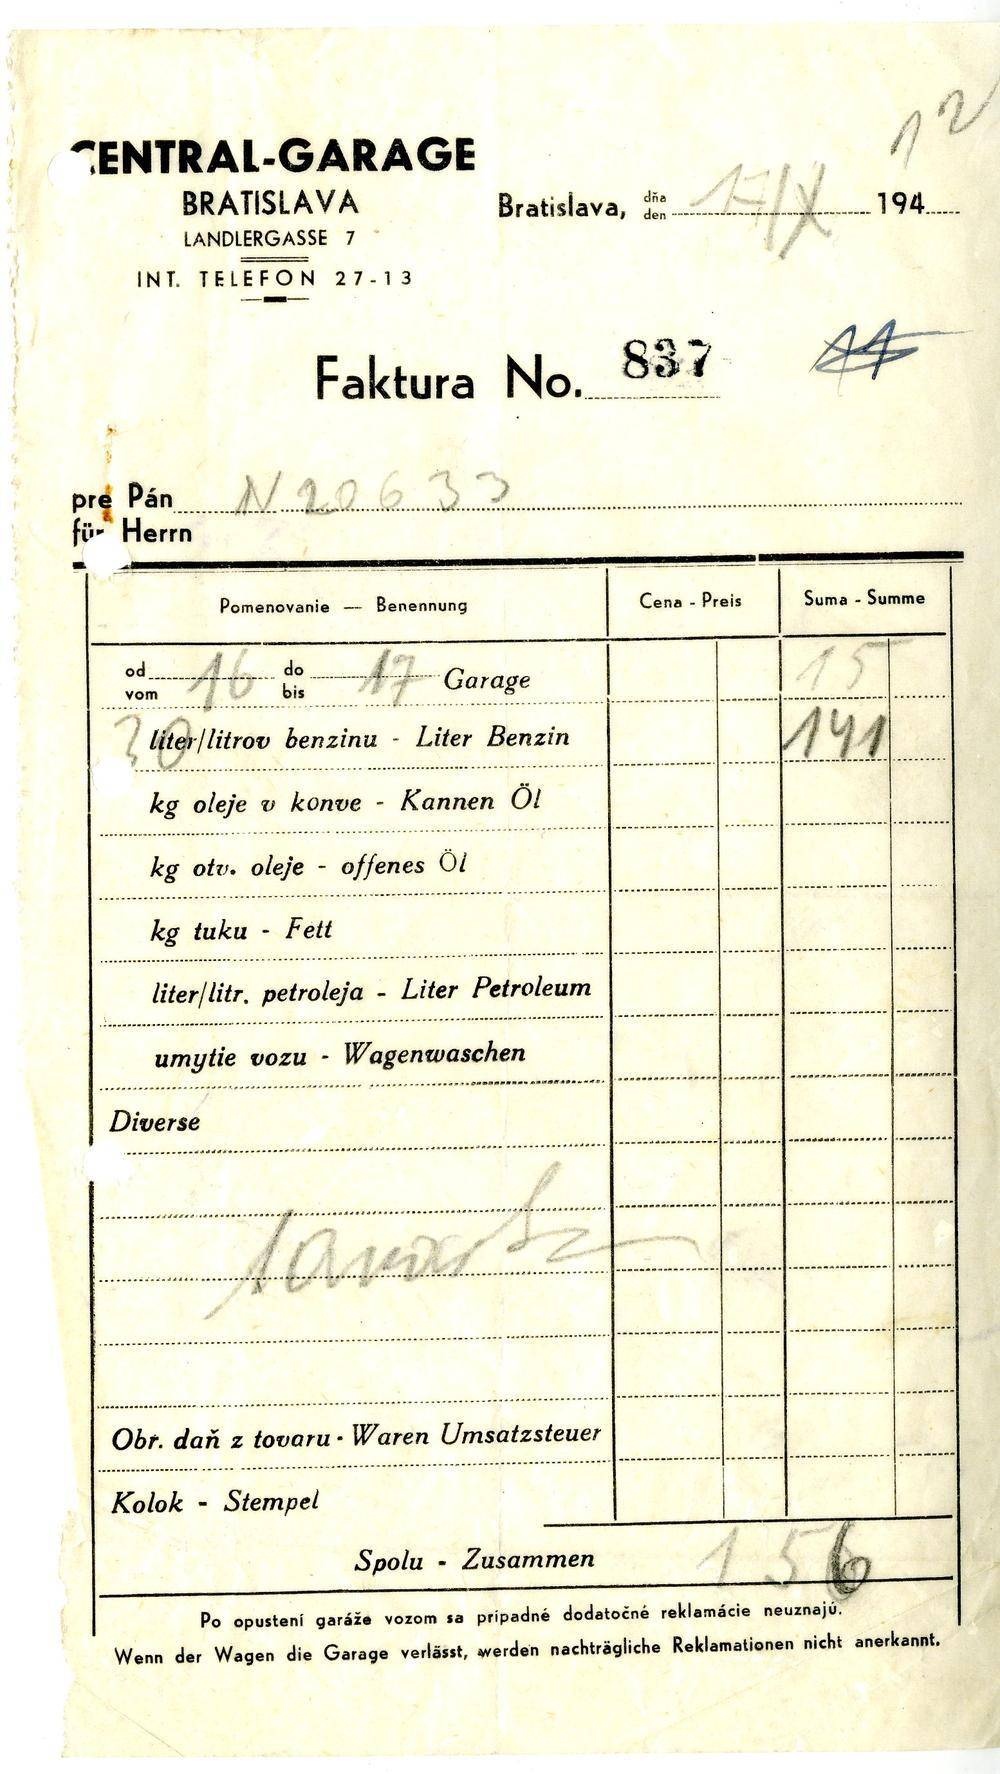 12
CENTRAL-GARAGE
BRATISLAVA
LANDLERGASSE 7
INT. TELEFON 27-13
Bratislava, dňa den 17/X 194
Faktura No. 837
pre Pán N 20633
für Herrn
Pomenovanie — Benennung Cena - Preis Suma - Summe
od vom 16 do bis 17 Garage 15
30 liter/litrov benzinu - Liter Benzin 141
kg oleje v konve - Kannen Öl
kg otv. oleje - offenes Öl
kg tuku - Fett
liter/litr. petroleja - Liter Petroleum
umytie vozu - Wagenwaschen
Diverse
Obr. daň z tovaru - Waren Umsatzsteuer
Kolok - Stempel
Spolu - Zusammen 156
Po opustení garáže vozom sa prípadné dodatočné reklamácie neuznajú.
Wenn der Wagen die Garage verlässt, werden nachträgliche Reklamationen nicht anerkannt.